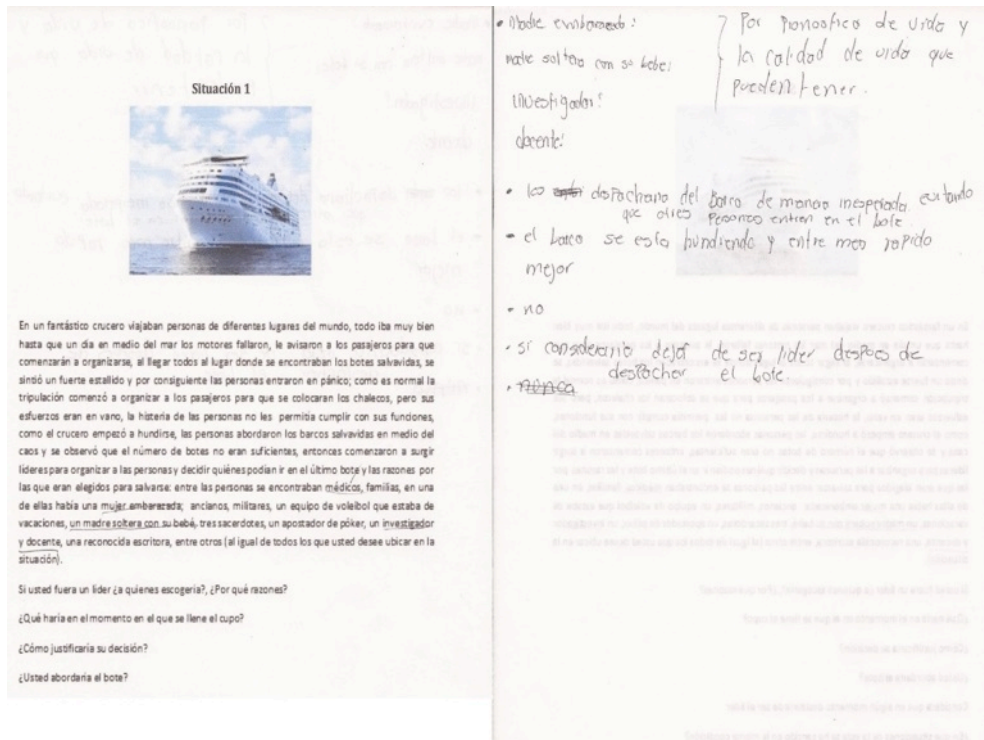 Situación 1
En un fantástico crucero viajaban personas de diferentes lugares del mundo, todo iba muy bien
hasta que un día en medio del mar los motores fallaron, le avisaron a los pasajeros para que
comenzarán a organizarse, al llegar todos al lugar donde se encontraban los botes salvavidas, se
sintió un fuerte estallido y por consiguiente las personas entraron en pánico; como es normal la
tripulación comenzó a organizar a los pasajeros para que se colocaran los chalecos, pero sus
esfuerzos eran en vano, la histeria de las personas no les permitía cumplir con sus funciones,
como el crucero empezó a hundirse, las personas abordaron los barcos salvavidas en medio del
caos y se observó que el número de botes no eran suficientes, entonces comenzaron a surgir
líderes para organizar a las personas y decidir quiénes podían ir en el último bote y las razones por
las que eran elegidos para salvarse: entre las personas se encontraban médicos, familias, en una
de ellas había una mujer embarazada; ancianos, militares, un equipo de voleibol que estaba de
vacaciones, un madre soltera con su bebé, tres sacerdotes, un apostador de póker, un investigador
y docente, una reconocida escritora, entre otros (al igual de todos los que usted desee ubicar en la
situación).
Si usted fuera un líder ¿a quienes escogería?, ¿Por qué razones?
¿Qué haría en el momento en el que se llene el cupo?
¿Cómo justificaría su decisión?
¿Usted abordaría el bote?
• Madre embarazada:
madre soltera con su bebe:
investigador:
docente:
Por pronostico de vida y
la calidad de vida que
pueden tener.
• los despachario del barco de manera inesperada evitando
que otras personas entran en el bote.
• el barco se esta hundiendo y entre mas rapido
mejor
• no
• si consideraria dejar de ser lider despues de
despachar el bote.
• nunca